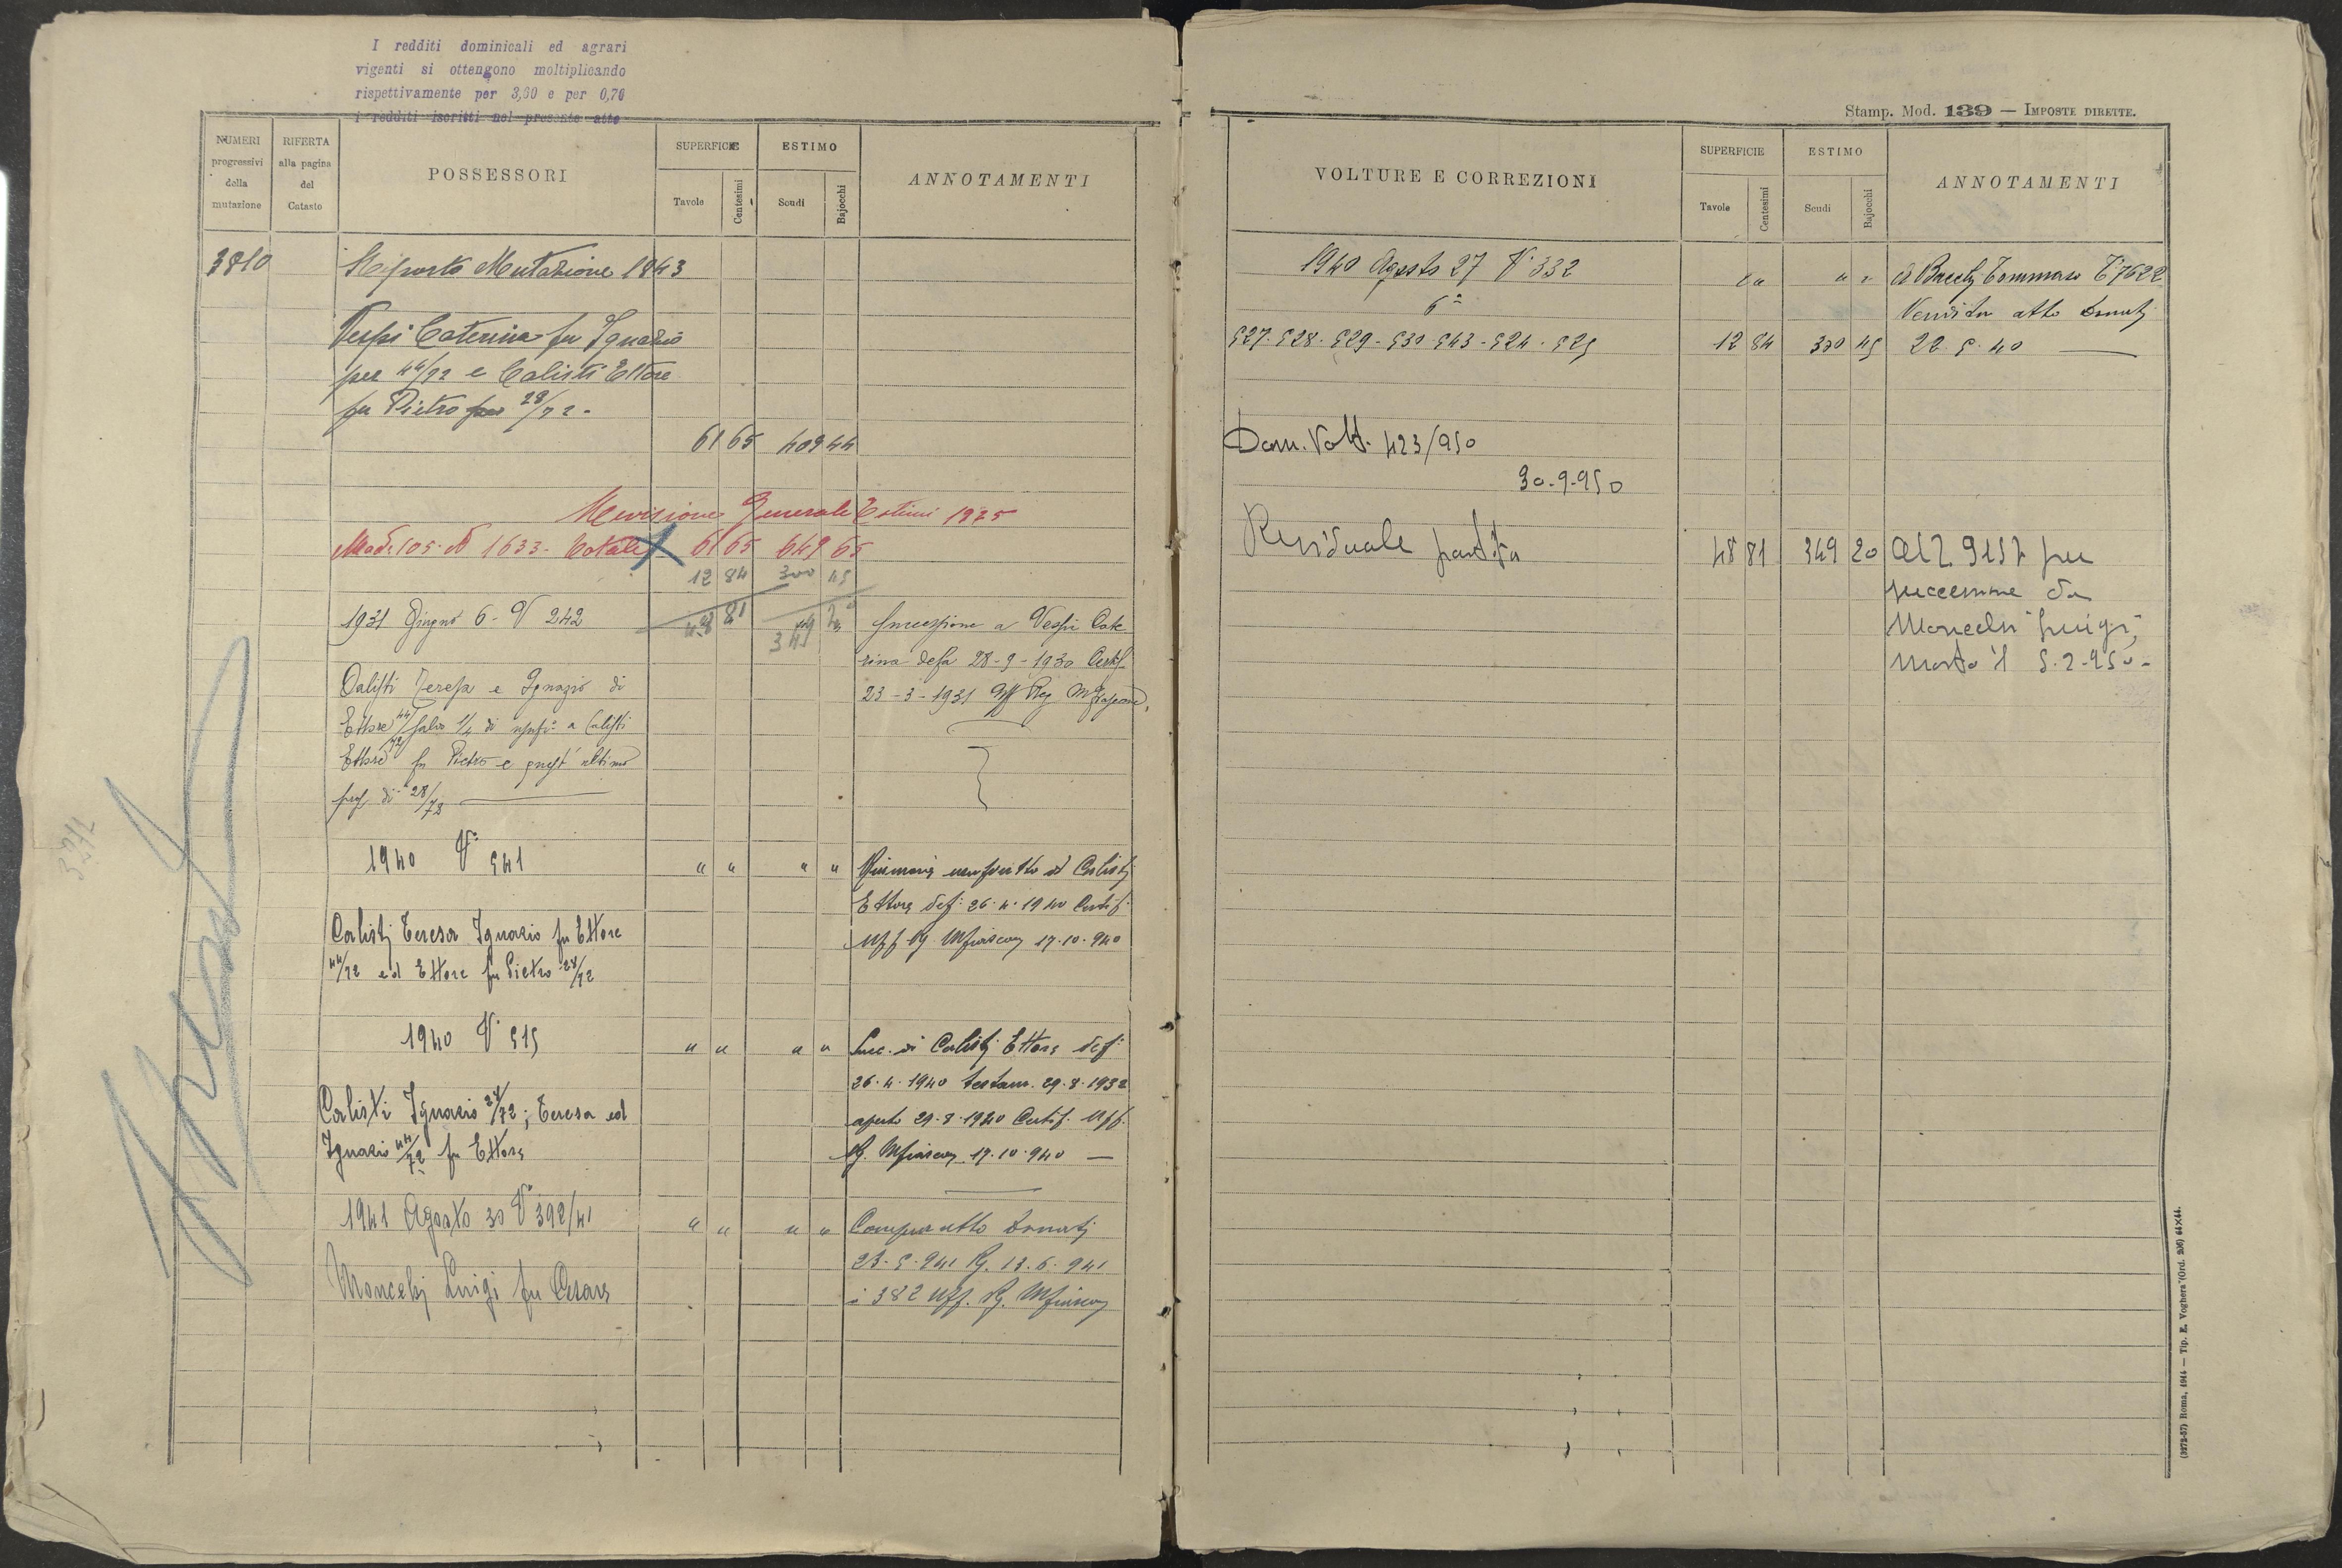 I redditi dominicali ed agrari
vigenti si ottengono moltiplicando
rispettivamente per 3,60 e per 0,76
i redditi iscritti nel presente atto
NUMERI progressivi della mutazione
RIFERTA alla pagina del Catasto
POSSESSORI
SUPERFICIE
Tavole
Centesimi
ESTIMO
Scudi
Bajocchi
ANNOTAMENTI
3810
Riporto Mutazione 1843
Vespi Caterina fu Ignazio
per 44/72 e Calisti Ettore
fu Pietro per 28/72 -
61 65 409 44
Revisione Generale Estimi 1925
Mod. 105. N 1633. Totale 61 65 649 65
12 84 300 45
1931 Giugno 6 - V 242
48 81 349 20
Successione a Vespi Cate
rina defa 28-9-1930 Certif.
23-3-1931 Uff Reg
Calisti Teresa e Ignazio di
Ettore 44/72 salvo 1/4 di usufo a Calisti
Ettore fu Pietro e quest'ultimo
prop di 28/72
1940 V° 541 " " " "
Riunione usufrutto di Calistj
Ettore def: 26.4.1940 Certif.
Uff Rg. Mfiascon 17.10.940
Calistj Teresa Ignazio fu Ettore
44/72 ed Ettore fu Pietro 28/72
1940 V° 515 " " " "
Succ. di Calistj Ettore def:
26.4.1940 testam. 29.8.1932
aperto 29.8.1940 Certif. Uff.
Rg. Mfiascon 17.10.940 —
Calisti Ignazio 28/72; Teresa ed
Ignazio 44/72 fu Ettore
1941 Agosto 30 V° 392/41 " " " "
Compra atto Donatj
23.5.941 Rg. 13.6.941
i 382 Uff. Rg. Mfiascon
Moncelsj Luigi fu Cesare
Stamp. Mod. 139 — IMPOSTE DIRETTE.
VOLTURE E CORREZIONI
SUPERFICIE
Tavole
Centesimi
ESTIMO
Scudi
Bajocchi
ANNOTAMENTI
1940 Agosto 27 V° 332 " " " "
Tommaso 7622
6ª
Vendita atto Donatj
527. 528. 529 - 530. 543 - 524. 525 12 84 300 45 22.5.40 —
Dom. Volt. 423/950
30-9-950
Residuale partita 48 81 349 20
per
successione da
Luigi,
morto il 5-2-950-
(3272-57) Roma, 1914 — Tip. E. Voghera (Ord. 206) 64×44.